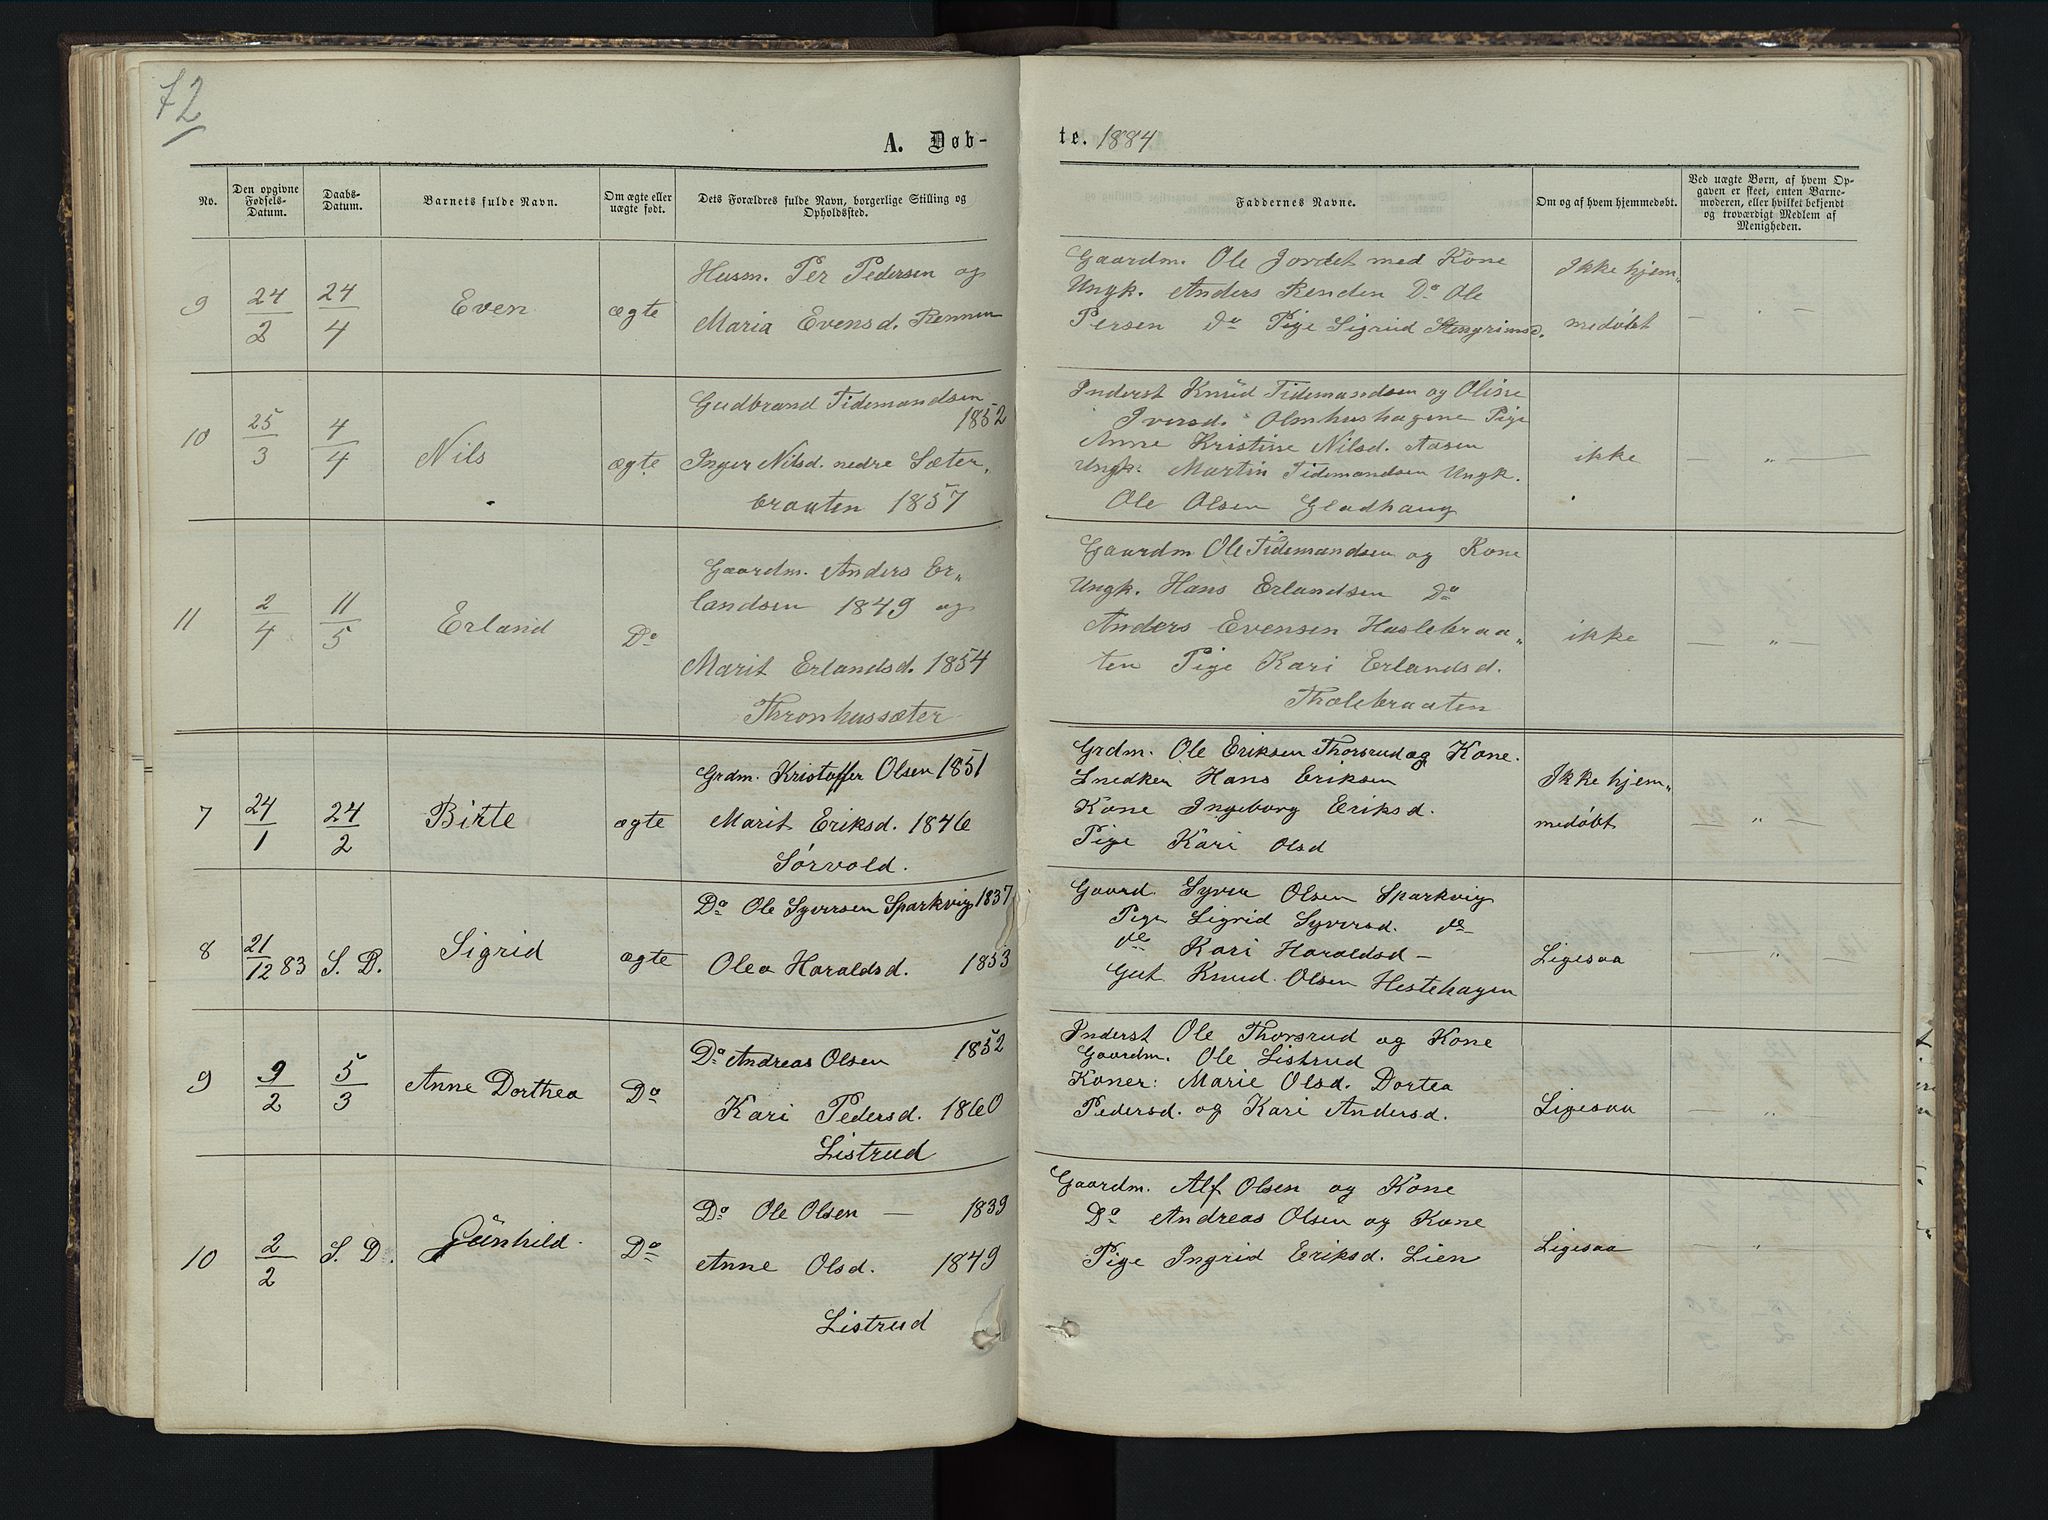 72
A. Døb-
te. 1884
No.
Den opgivne Fødsels-Datum.
Daabs-Datum.
Barnets fulde Navn.
Om ægte eller uægte født.
Dets Forældres fulde Navn, borgerlige Stilling og Opholdssted.
Faddernes Navne.
Om og af hvem hjemmedøbt.
Ved uægte Børn, af hvem Op-
gaven er skeet, enten Barne-
moderen, eller hvilket bekjendt
og troværdigt Medlem af
Menigheden.
9
24/2
24/4
Even
ægte
Husm. Per Pedersen og
Maria Evensd.
Gaardm. Ole Jordet med Kone
Ungk. Anders Renden Do Ole
Persen do Pige Sigrid Stengrimsd.
Ikke hjem„
medøbt
— „ —
10
25/3
4/4
Nils
ægte
Gudbrand Tidemandsen
1852
Inger Nilsd. nedre Sæter„
braaten 1857
Inderst Knud Tidemandsen og Oline
Iversd. Olmhushagene Pige
Anne Kristine Nilsd. Aasen
Ungk. Martin Tidemandsen Ungk.
Ole Olsen Gladhaug
ikke
— „ —
11
2/4
11/5
Erland
Do
Gaardm. Anders Er„
landsen 1849 og
Marit Erlandsd. 1854
Thronhussæter
Gaardm Ole Tidemandsen og Kone
Ungk. Hans Erlandsen Do
Anders Evensen Haslebraa„
ten Pige Kari Erlandsd.
Tholebraaten
ikke
— „ —
7
24/1
24/2
Birte
ægte
Grdm. Kristoffer Olsen 1851
Marit Eriksd. 1846
Sørvold.
Grdm. Ole Eriksen Thorsrud og Kone.
Snedker Hans Eriksen
Kone Ingeborg Eriksd.
Pige Kari Olsd
Ikke hjem„
medøbt
— „ —
8
21/12 83
S. D.
Sigrid
ægte
Do Ole Syversen Sparkvig 1837
Olea Haraldsd. 1853
Gaard. Syver Olsen Sparkvig
Pige Sigrid Syversd. do
do Kari Haraldsd —
Gut Knud Olsen Hestehagen
Ligesaa
— „ —
9
9/2
5/3
Anne Dorthea
Do
Do Andreas Olsen 1852
Kari Pedersd. 1860
Listrud
Inderst Ole Thorsrud og Kone
Gaardm. Ole Listrud
Koner: Marie Olsd. Dortea
Pedersd. og Kari Andersd.
Ligesaa
— „
10
2/2
S. D.
Gunhild.
Do
Do Ole Olsen — 1839
Anne Olsd. 1849
Listrud
Gaardm. Alf Olsen og Kone
Do Andreas Olsen og Kone
Pige Ingrid Eriksd. Lien
Ligesaa
— „